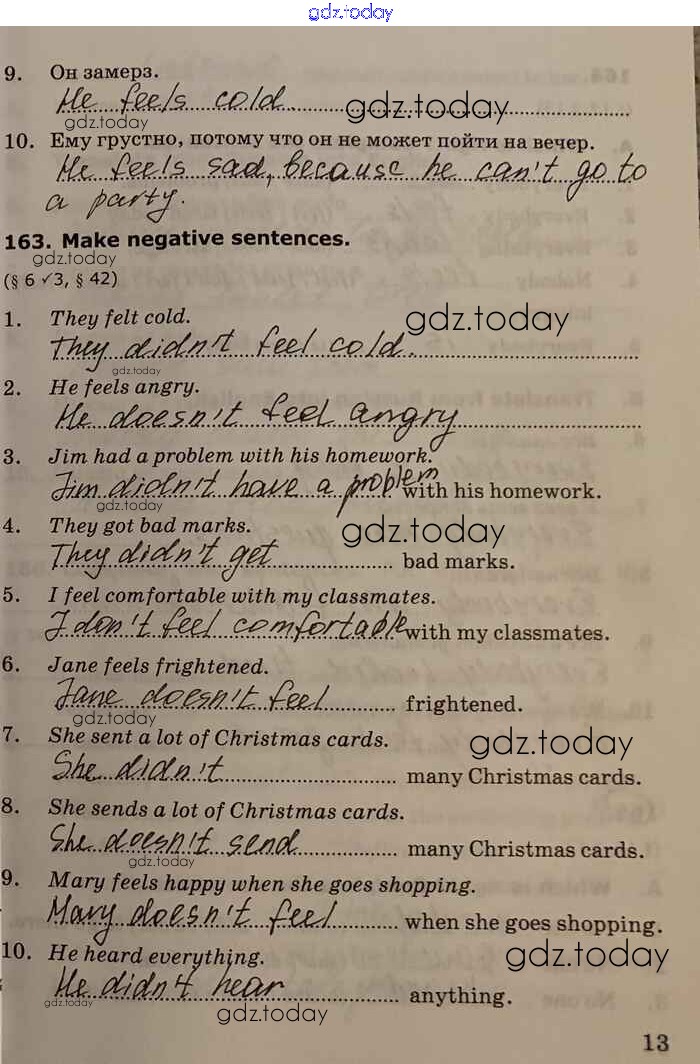 gdz.today
9. Он замерз.
He feels cold
gdz.today
gdz.today
10. Ему грустно, потому что он не может пойти на вечер.
He feels sad, because he can't go to
a party.
163. Make negative sentences.
gdz.today
(§ 6 ✓3, § 42)
1. They felt cold.
gdz.today
They didn't feel cold.
gdz.today
2. He feels angry.
He doesn't feel angry
3. Jim had a problem with his homework.
Jim didn't have a problem with his homework.
gdz.today
4. They got bad marks.
gdz.today
They didn't get bad marks.
5. I feel comfortable with my classmates.
I don't feel comfortable with my classmates.
6. Jane feels frightened.
Jane doesn't feel frightened.
gdz.today
7. She sent a lot of Christmas cards.
gdz.today
She didn't many Christmas cards.
8. She sends a lot of Christmas cards.
She doesn't send many Christmas cards.
gdz.today
9. Mary feels happy when she goes shopping.
Mary doesn't feel when she goes shopping.
10. He heard everything.
gdz.today
He didn't hear anything.
gdz.today
gdz.today
13